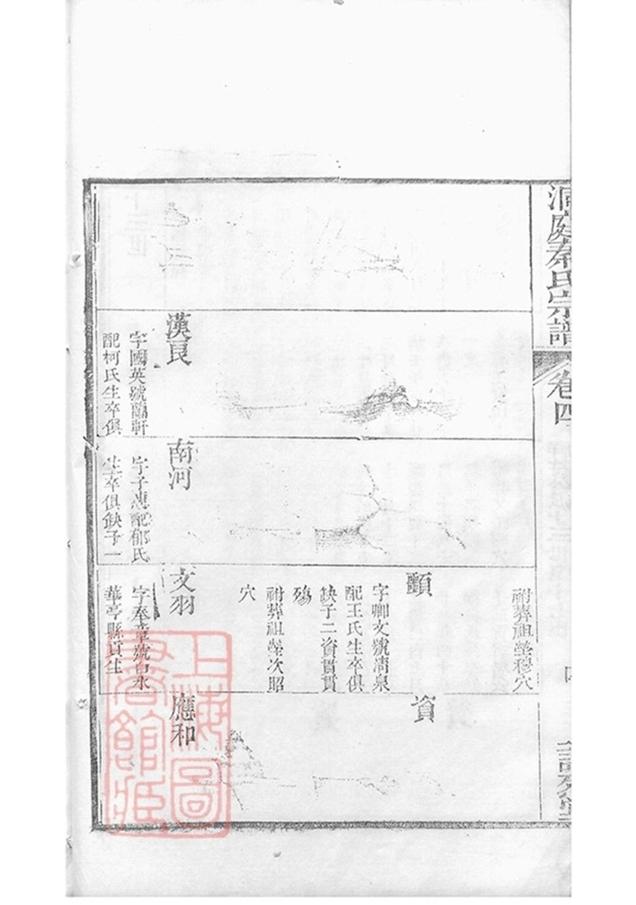 洞庭秦氏宗譜
卷四
漢良
字國英號臨軒
配柯氏生卒俱
南河
字子溥配郁氏
生卒俱缺子一
祔葬祖塋穆穴
顗
字卿文號清泉
配王氏生卒俱
缺子二資貫貫
殤
祔葬祖塋次昭
穴
文羽
字奉章號白水
華亭縣貢生
資
應和
上海圖書館藏